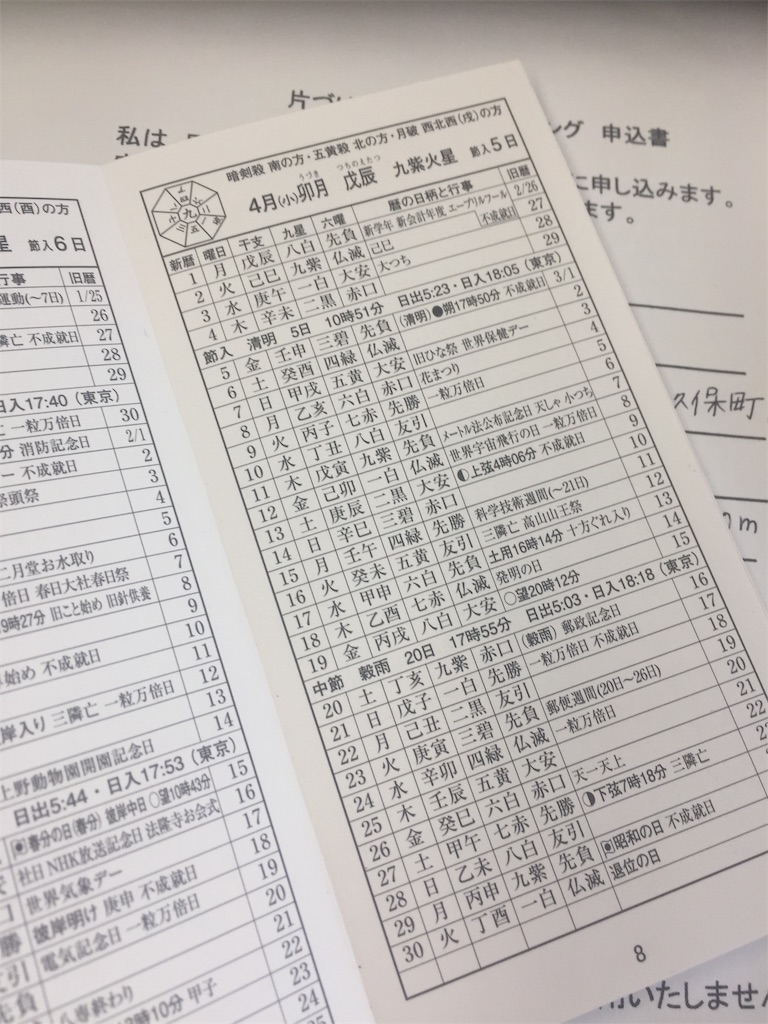 片づ
私は
ング 申込書
に申し込みます。
ます。
久保町
西(酉)の方
星 節入6日
行事 旧暦
運動(〜7日) 1/25
26
隣亡 不成就日 27
28
29
日入17:40(東京)
一粒万倍日 30
分 消防記念日 2/1
不成就日 2
祭頭祭 3
4
5
二月堂お水取り 6
倍日 春日大社春日祭 7
9時27分 旧こと始め 旧針供養 8
9
10
始め 不成就日 11
12
岸入り 三隣亡 一粒万倍日 13
14
上野動物園開園記念日
日出5:44・日入17:53(東京)
春分の日(春分) 彼岸中日 ○望10時43分 15
社日 NHK放送記念日 法隆寺お会式 16
17
世界気象デー 18
彼岸明け 庚申 不成就日 19
電気記念日 一粒万倍日 20
21
22
八専終わり 23
13時10分 甲子 24
25
暗剣殺 南の方・五黄殺 北の方・月破 西北西(戌)の方
うづき つちのえたつ
4月(小)卯月 戊辰 九紫火星 節入5日
新暦 曜日 干支 九星 六曜 暦の日柄と行事 旧暦
1 月 戊辰 八白 先負 新学年 新会計年度 エープリルフール 2/26
2 火 己巳 九紫 仏滅 己巳 不成就日 27
3 水 庚午 一白 大安 大つち 28
4 木 辛未 二黒 赤口 29
節入 清明 5日 10時51分 日出5:23・日入18:05(東京)
5 金 壬申 三碧 先負 (清明)●朔17時50分 不成就日 3/1
6 土 癸酉 四緑 仏滅 2
7 日 甲戌 五黄 大安 旧ひな祭 世界保健デー 3
8 月 乙亥 六白 赤口 花まつり 4
9 火 丙子 七赤 先勝 一粒万倍日 5
10 水 丁丑 八白 友引 6
11 木 戊寅 九紫 先負 メートル法公布記念日 天しゃ 小つち 7
12 金 己卯 一白 仏滅 世界宇宙飛行の日 一粒万倍日 8
13 土 庚辰 二黒 大安 ◐上弦4時06分 不成就日 9
14 日 辛巳 三碧 赤口 10
15 月 壬午 四緑 先勝 科学技術週間(〜21日) 11
16 火 癸未 五黄 友引 三隣亡 高山山王祭 12
17 水 甲申 六白 先負 土用16時14分 十方ぐれ入り 13
18 木 乙酉 七赤 仏滅 発明の日 14
19 金 丙戌 八白 大安 ○望20時12分 15
中節 穀雨 20日 17時55分 日出5:03・日入18:18(東京)
20 土 丁亥 九紫 赤口 (穀雨) 郵政記念日 16
21 日 戊子 一白 先勝 一粒万倍日 不成就日 17
22 月 己丑 二黒 友引 18
23 火 庚寅 三碧 先負 郵便週間(20日〜26日) 19
24 水 辛卯 四緑 仏滅 一粒万倍日 20
25 木 壬辰 五黄 大安 21
26 金 癸巳 六白 赤口 天一天上 22
27 土 甲午 七赤 先勝 ◑下弦7時18分 三隣亡
28 日 乙未 八白 友引
29 月 丙申 九紫 先負 昭和の日 不成就日
30 火 丁酉 一白 仏滅 退位の日
8
用いたしません